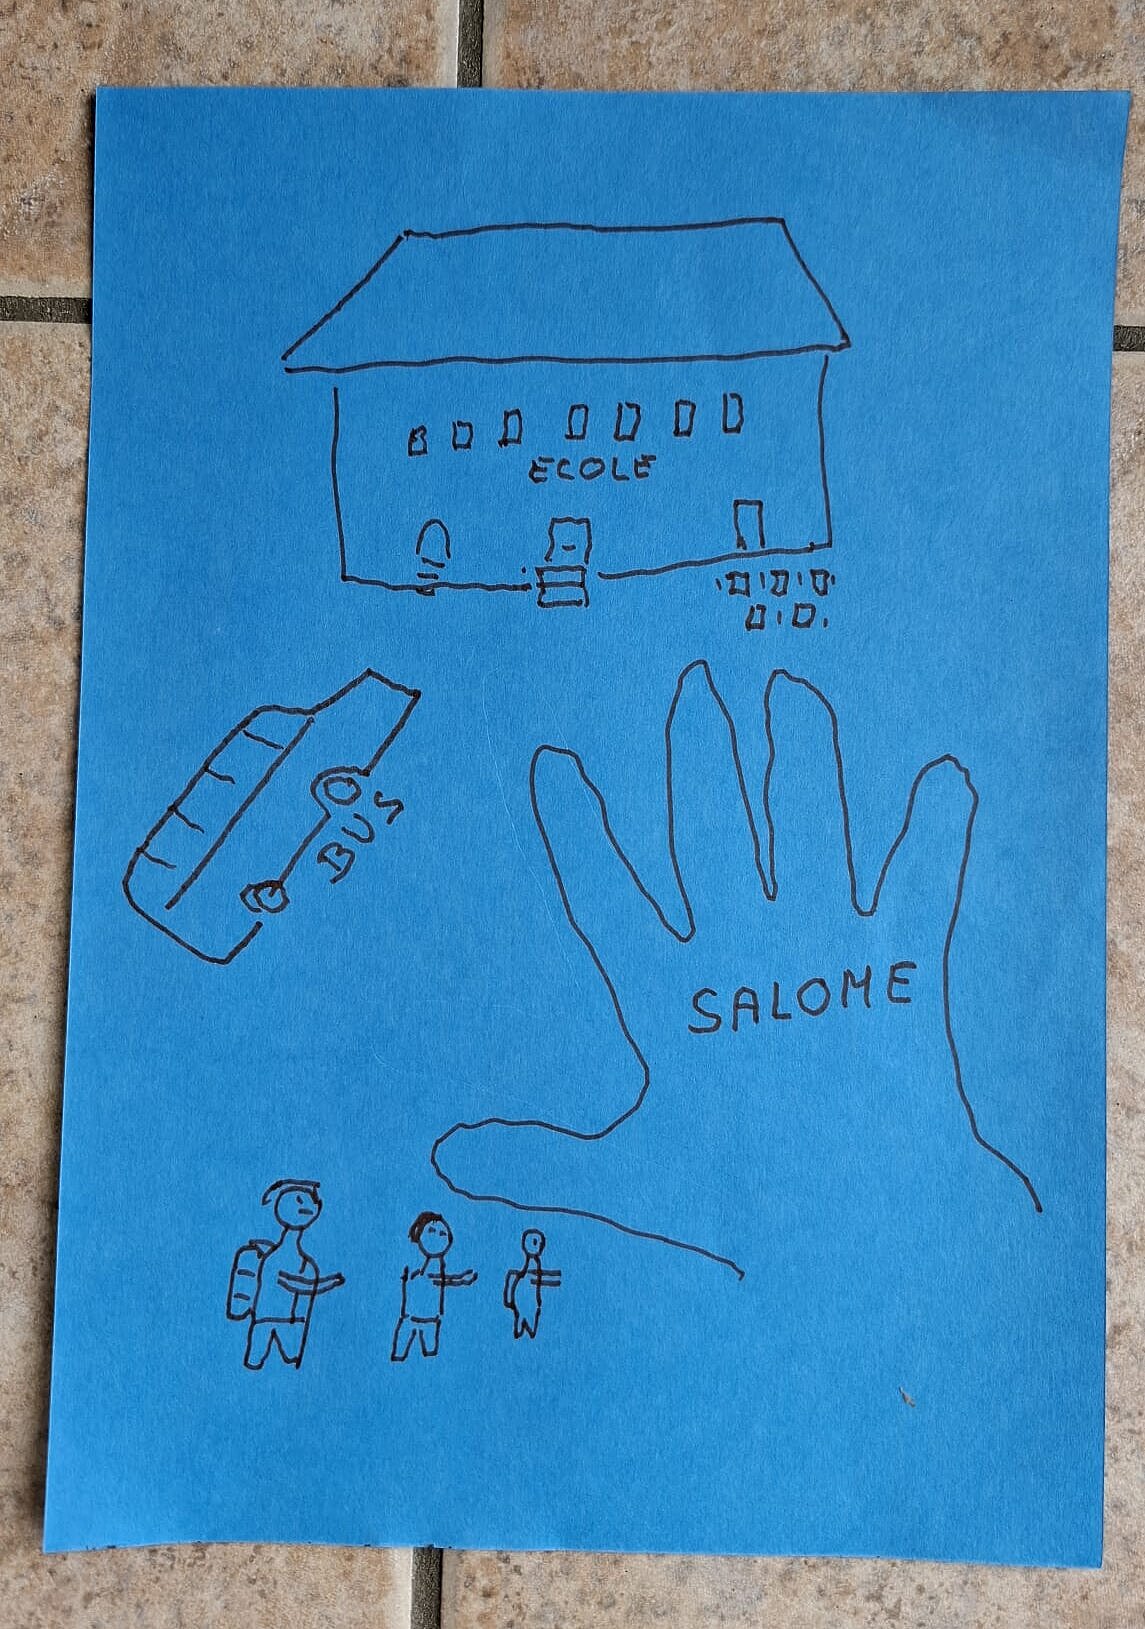 ECOLE
BUS
SALOME